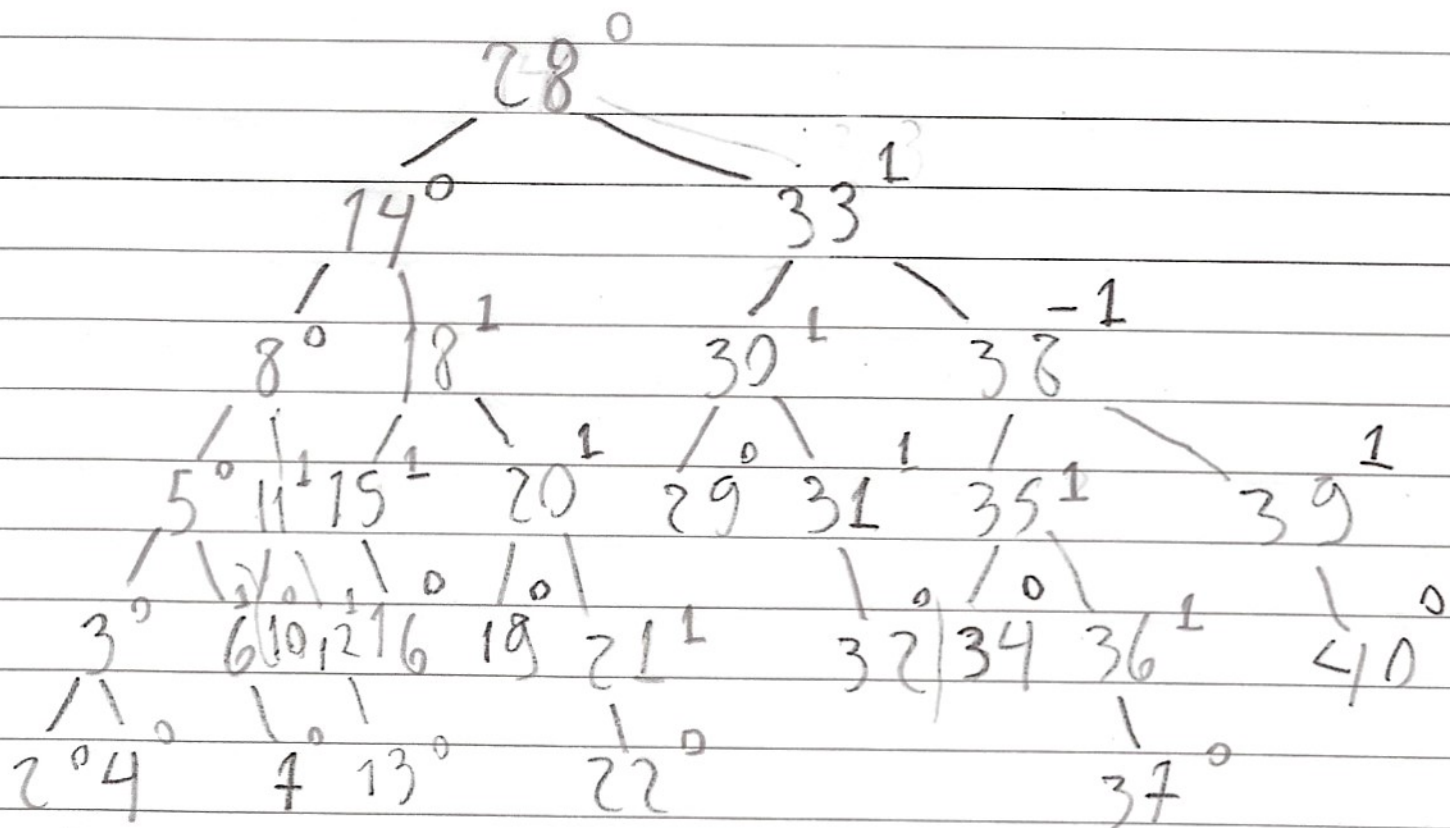 28⁰
14⁰ 33¹
8⁰ 18¹ 30¹ 38⁻¹
5⁰ 11¹ 15¹ 20¹ 29⁰ 31¹ 35¹ 39¹
3⁰ 6¹ 10⁰ 12¹ 16⁰ 19⁰ 21¹ 32⁰ 34⁰ 36¹ 40⁰
2⁰ 4⁰ 7⁰ 13⁰ 22⁰ 37⁰